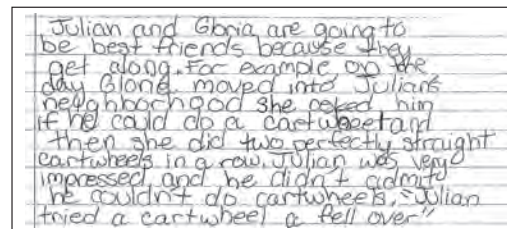 Julian and Gloria are going to
be best friends because they
get along. For example on the
day Gloria moved into Julian's
neighborhood she asked him
if he could do a cartwheel and
then she did two perfectly straight
cartwheels in a row. Julian was very
impressed and he didn't admit
he couldn't do cartwheels, "Julian
tried a cartwheel a fell over"